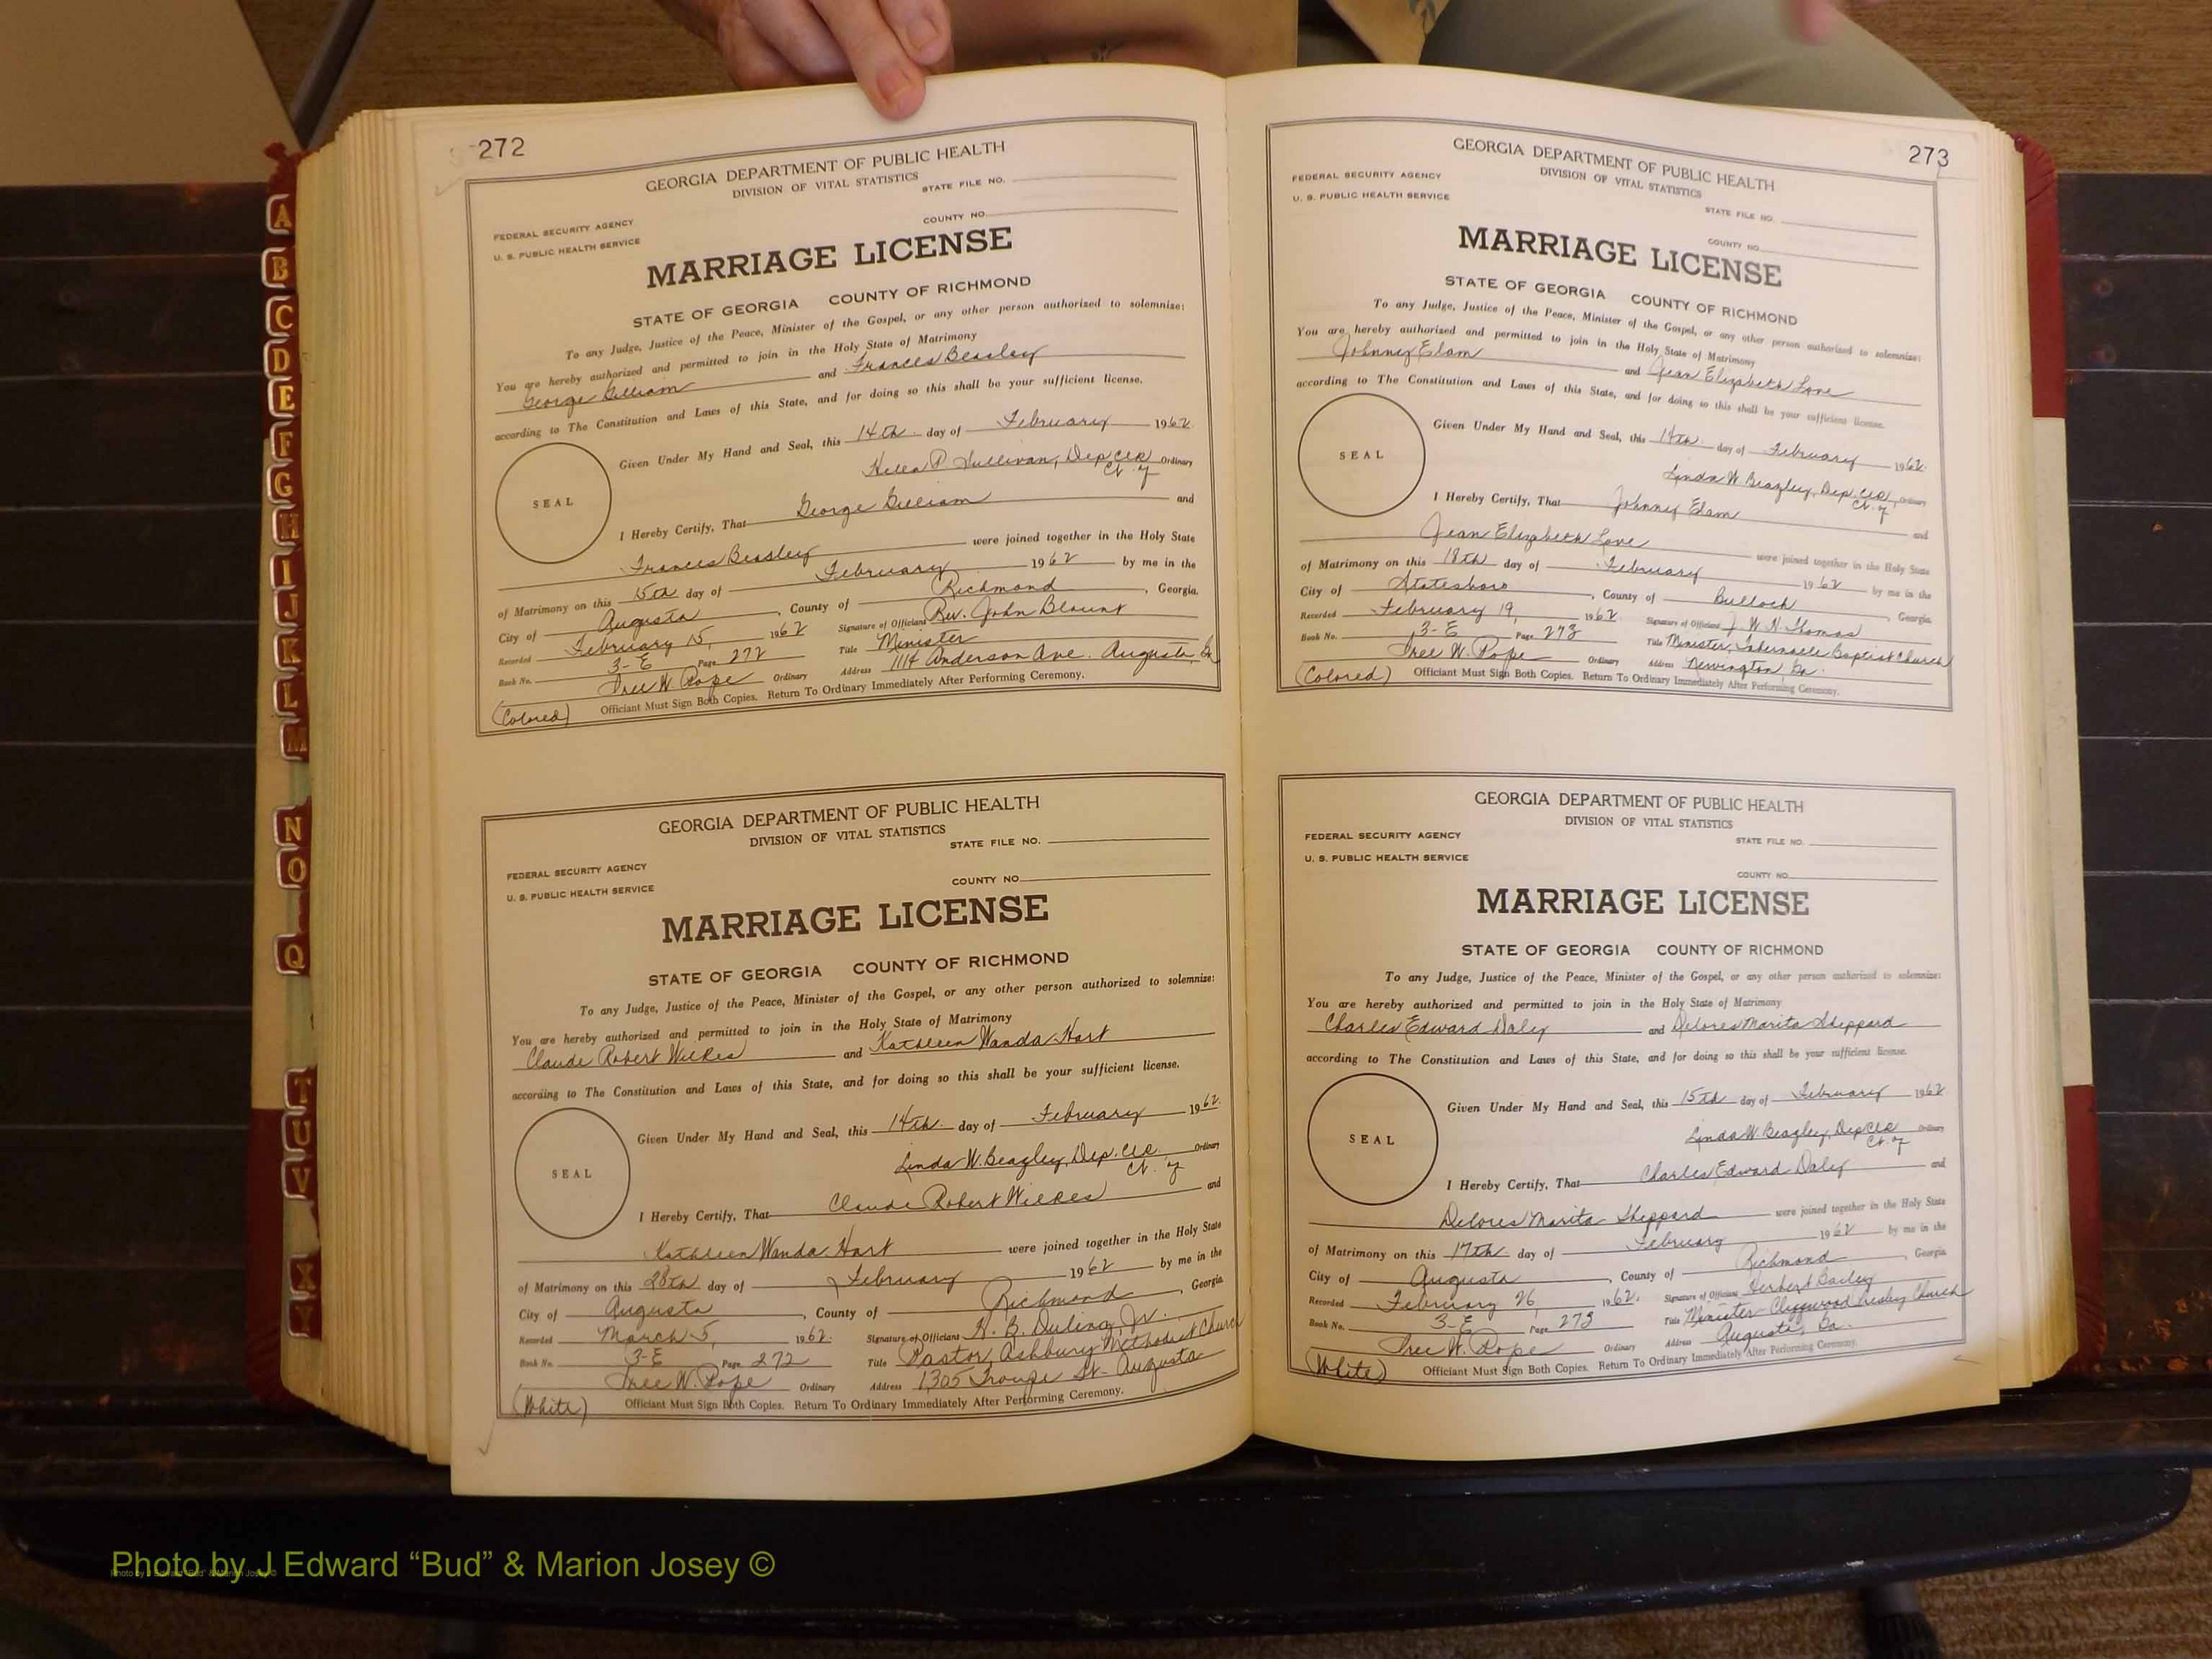 272
GEORGIA DEPARTMENT OF PUBLIC HEALTH
DIVISION OF VITAL STATISTICS
STATE FILE NO.
FEDERAL SECURITY AGENCY
COUNTY NO.
U. S. PUBLIC HEALTH SERVICE
MARRIAGE LICENSE
STATE OF GEORGIA COUNTY OF RICHMOND
To any Judge, Justice of the Peace, Minister of the Gospel, or any other person authorized to solemnize:
You are hereby authorized and permitted to join in the Holy State of Matrimony
George Gilliam and Frances Beasley
according to The Constitution and Laws of this State, and for doing so this shall be your sufficient license.
Given Under My Hand and Seal, this 14th day of February 1962
Helen P. Sullivan, Dep. Clk Ordinary
Ct. of
SEAL
I Hereby Certify, That George Gilliam and
Frances Beasley were joined together in the Holy State
of Matrimony on this 15th day of February 1962 by me in the
City of Augusta, County of Richmond, Georgia.
Recorded February 15, 1962 Signature of Officiant Rev. John Blount
Book No. 3-E Page 272 Title Minister
Tree W. Pope Ordinary Address 1114 Anderson Ave. Augusta, Ga
(Colored) Officiant Must Sign Both Copies. Return To Ordinary Immediately After Performing Ceremony.
GEORGIA DEPARTMENT OF PUBLIC HEALTH
DIVISION OF VITAL STATISTICS
STATE FILE NO.
FEDERAL SECURITY AGENCY
COUNTY NO.
U. S. PUBLIC HEALTH SERVICE
MARRIAGE LICENSE
STATE OF GEORGIA COUNTY OF RICHMOND
To any Judge, Justice of the Peace, Minister of the Gospel, or any other person authorized to solemnize:
You are hereby authorized and permitted to join in the Holy State of Matrimony
Claude Robert Wilkes and Kathleen Wanda Hart
according to The Constitution and Laws of this State, and for doing so this shall be your sufficient license.
Given Under My Hand and Seal, this 14th day of February 1962
Linda W. Beazley, Dep. Clk Ordinary
Ct. of
SEAL
I Hereby Certify, That Claude Robert Wilkes and
Kathleen Wanda Hart were joined together in the Holy State
of Matrimony on this 28th day of February 1962 by me in the
City of Augusta, County of Richmond, Georgia
Recorded March 5, 1962. Signature of Officiant H. B. Duling, Jr.
Book No. 3-E Page 272 Title Pastor, Ashbury Methodist Church
Tree W. Pope Ordinary Address 1305 Troupe St- Augusta
(White) Officiant Must Sign Both Copies. Return To Ordinary Immediately After Performing Ceremony.
273
GEORGIA DEPARTMENT OF PUBLIC HEALTH
FEDERAL SECURITY AGENCY
DIVISION OF VITAL STATISTICS
U. S. PUBLIC HEALTH SERVICE
STATE FILE NO.
COUNTY NO.
MARRIAGE LICENSE
STATE OF GEORGIA COUNTY OF RICHMOND
To any Judge, Justice of the Peace, Minister of the Gospel, or any other person authorized to solemnize:
You are hereby authorized and permitted to join in the Holy State of Matrimony
Johnny Elam and Jean Elizabeth Love
according to The Constitution and Laws of this State, and for doing so this shall be your sufficient license.
Given Under My Hand and Seal, this 14th day of February 1962.
Linda W Beazley, Dep. Clk, Ordinary
Ct. of
SEAL
I Hereby Certify, That Johnny Elam and
Jean Elizabeth Love were joined together in the Holy State
of Matrimony on this 18th day of February 1962 by me in the
City of Statesboro, County of Bulloch, Georgia
Recorded February 19, 1962. Signature of Officiant J. W. N. Thomas
Book No. 3-E Page 273 Title Minister, Tabernacle Baptist Church
Tree W. Pope Ordinary Address Newington, Ga.
(Colored) Officiant Must Sign Both Copies. Return To Ordinary Immediately After Performing Ceremony.
GEORGIA DEPARTMENT OF PUBLIC HEALTH
DIVISION OF VITAL STATISTICS
FEDERAL SECURITY AGENCY
STATE FILE NO.
U. S. PUBLIC HEALTH SERVICE
COUNTY NO.
MARRIAGE LICENSE
STATE OF GEORGIA COUNTY OF RICHMOND
To any Judge, Justice of the Peace, Minister of the Gospel, or any other person authorized to solemnize:
You are hereby authorized and permitted to join in the Holy State of Matrimony
Charles Edward Daly and Delores Marita Sheppard
according to The Constitution and Laws of this State, and for doing so this shall be your sufficient license.
Given Under My Hand and Seal, this 15th day of February 1962
Linda W. Beazley, Dep Clk Ordinary
Ct. of
SEAL
I Hereby Certify, That Charles Edward Daly and
Delores Marita Sheppard were joined together in the Holy State
of Matrimony on this 17th day of February 1962 by me in the
City of Augusta, County of Richmond, Georgia
Recorded February 26, 1962. Signature of Officiant Herbert Bailey
Book No. 3-E Page 273 Title Minister- Church
Tree W. Pope Ordinary Address Augusta, Ga.
(White) Officiant Must Sign Both Copies. Return To Ordinary Immediately After Performing Ceremony.
A
B
C
D
E
F
G
H
I
J
K
L
M
N
O
Q
T
U
V
X
Y
Photo by J Edward “Bud” & Marion Josey ©
Photo by J Edward “Bud” & Marion Josey ©